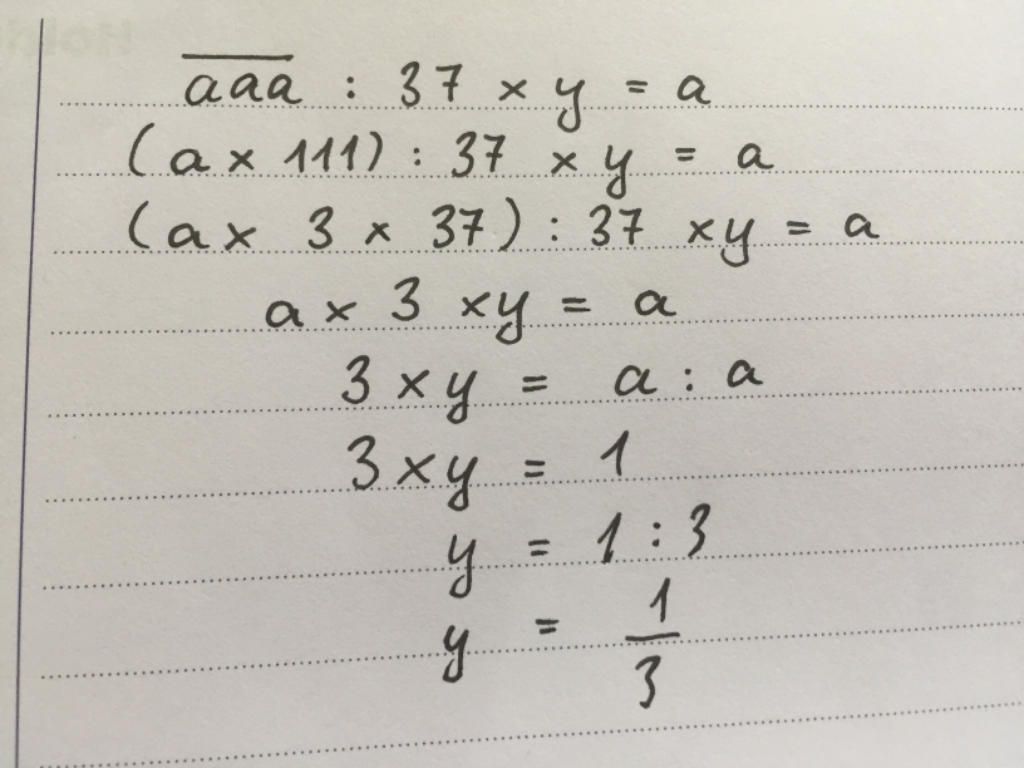 aaa : 37 × y = a
(a × 111) : 37 × y = a
(a × 3 × 37) : 37 × y = a
a × 3 × y = a
3 × y = a : a
3 × y = 1
y = 1 : 3
y = 1/3